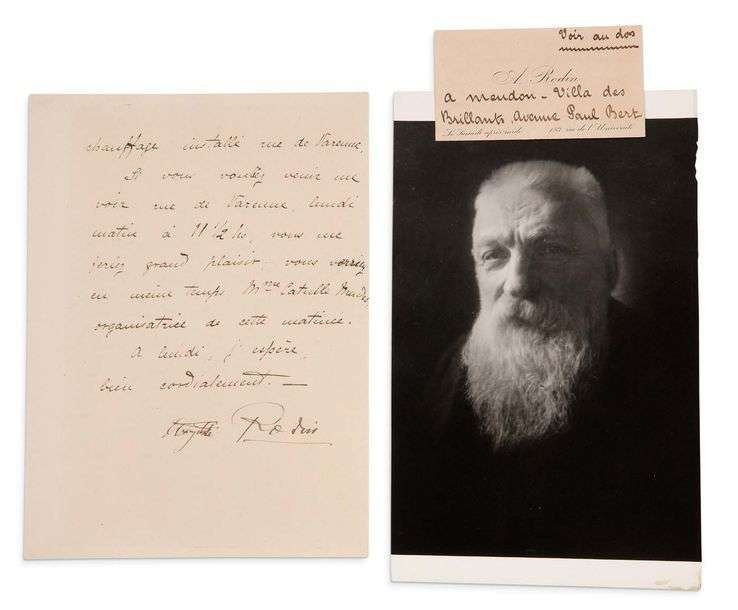 chauffage installé rue de Varenne.
Si vous voulez venir me
voir rue de Varenne, lundi
matin à 11 1/2 hs, vous me
feriez grand plaisir – vous verriez
en même temps Mme Catulle Mendès,
organisatrice de cette matinée.
A lundi, j'espère,
bien cordialement. —
Auguste Rodin
Voir au dos
A. Rodin
a Meudon – Villa des
Brillants, Avenue Paul Bert
Le Samedi après-midi 182, rue de l'Université